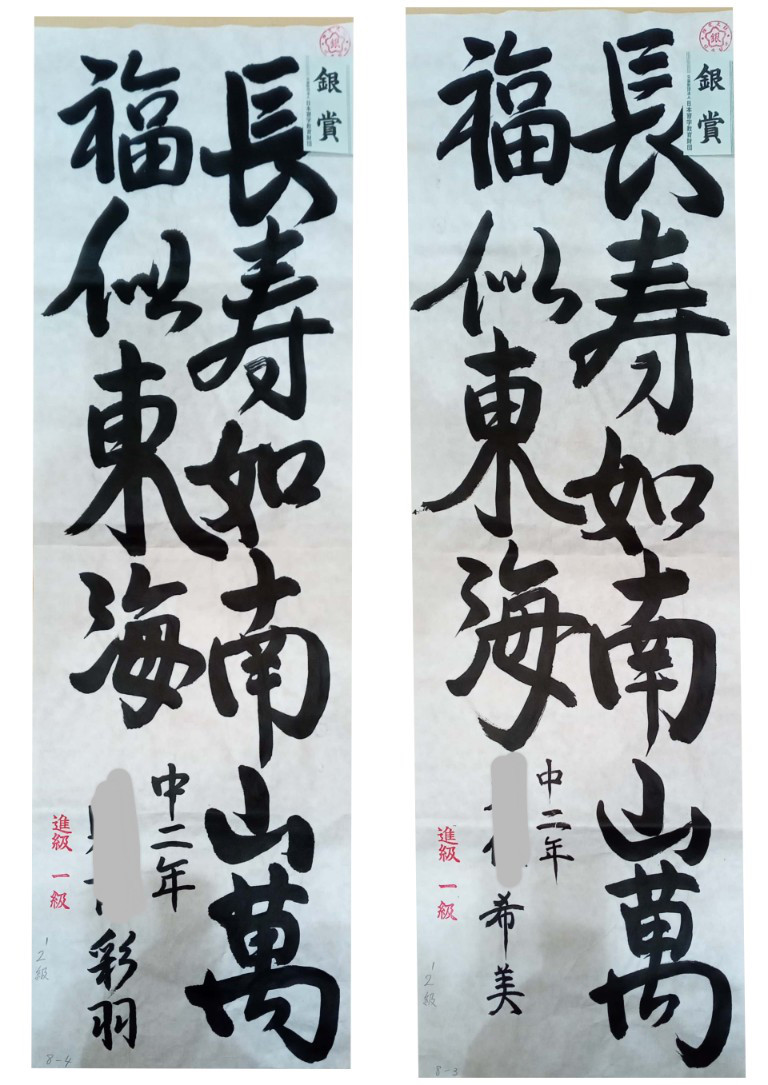 長寿如南山萬
福似東海
中二年
彩羽
進級 一級
12級
8-4
銀賞
銀
長寿如南山萬
福似東海
中二年
希美
進級 一級
12級
8-3
銀賞
日本習字教育財団
銀